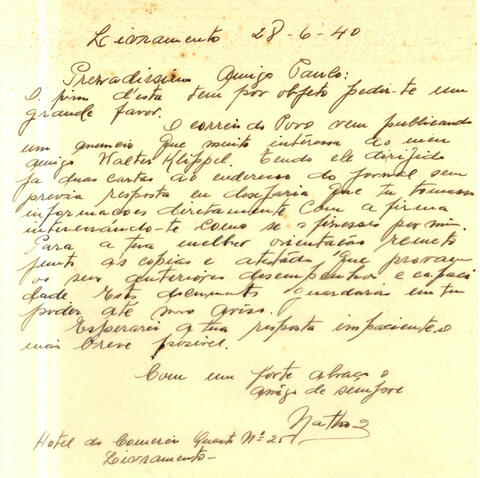 Livramento 28-6-40
Prezadissimo Amigo Paulo:
O fim d'esta tem por objeto pedir-te um
grande favor.
O correio do Povo vem publicando
um anuncio que muito interessa ao meu
amigo Walter Klippel. Tendo ele dirigido
ja duas cartas ao endereso do jornal sem
previa resposta eu desejaria que tu tomasses
informacoes diretamente com a firma
interessando-te como se o fizesses por mim.
Para a tua melhor orientacão remeto
junto as copias e atestados que provam
os seus anteriores desempenhos e capaci
dade Estes documentos guardarás em teu
poder até novo aviso.
Esperarei a tua resposta impaciente o
mais breve possivel.
Com um forte abraço o
amigo de sempre
Hotel do Comercio Quarto Nº 25
Livramento-